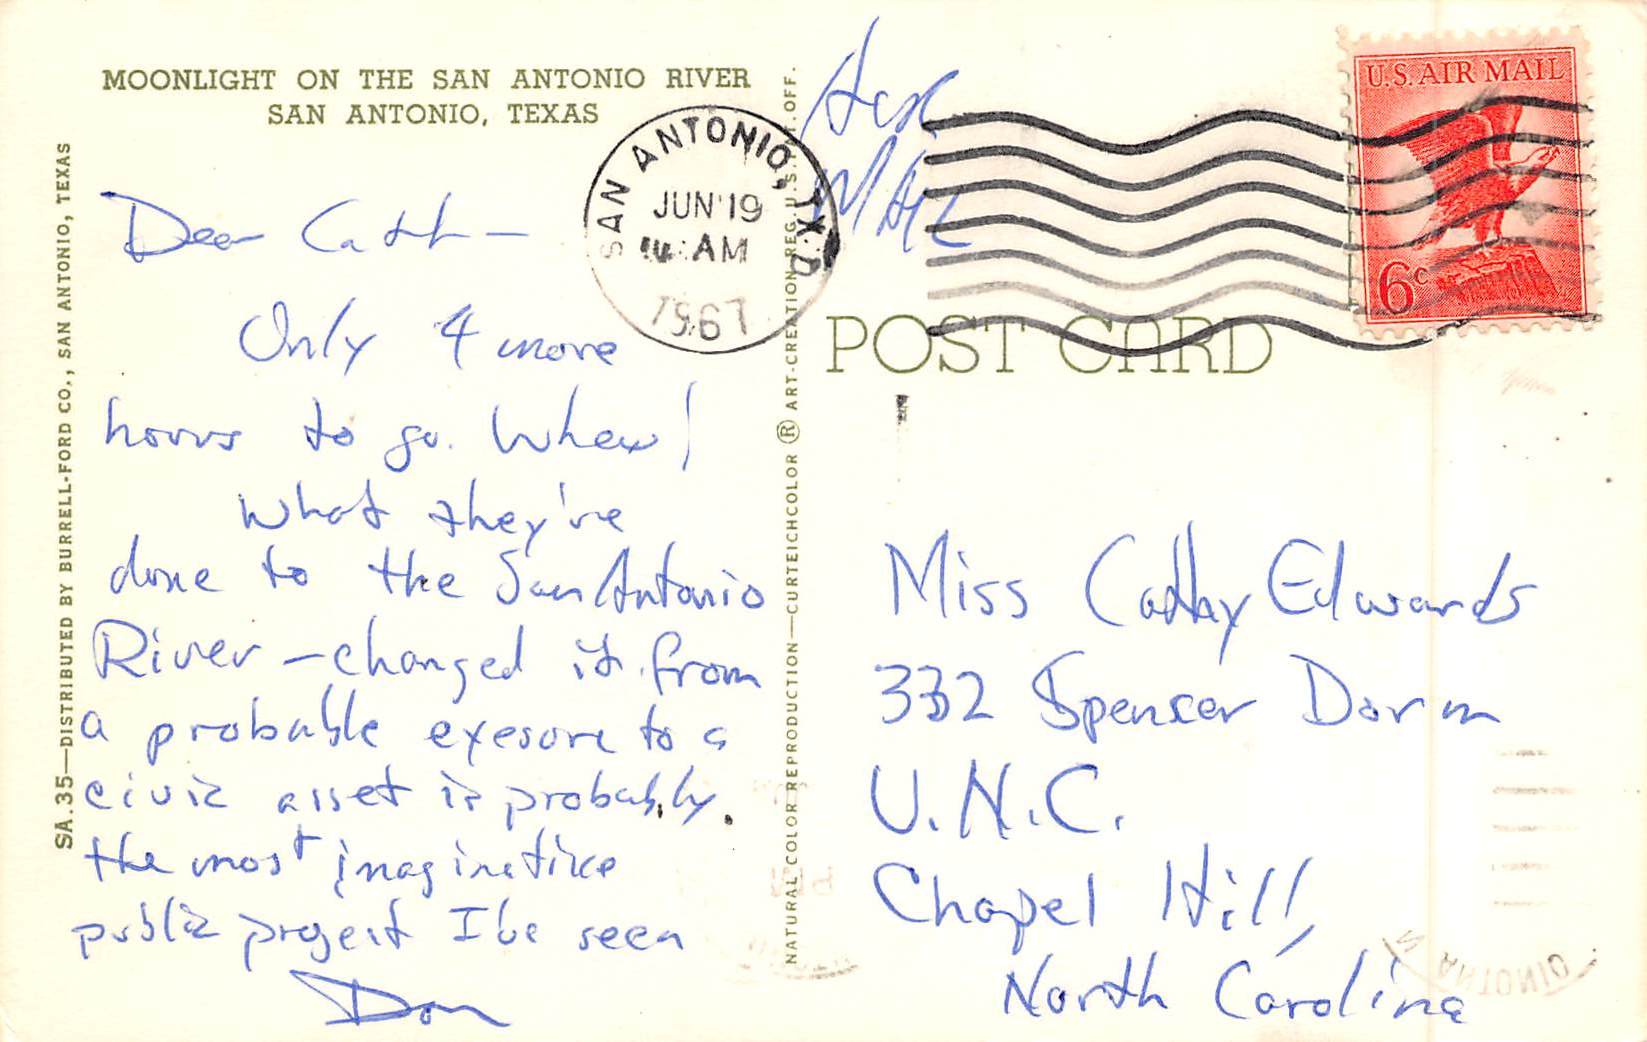 MOONLIGHT ON THE SAN ANTONIO RIVER
SAN ANTONIO, TEXAS
SA.35—DISTRIBUTED BY BURRELL-FORD CO., SAN ANTONIO, TEXAS
Dear Cath—
Only 4 more
hours to go. Whew!
What they've
done to the San Antonio
River—changed it from
a probable exesore to a
civic asset is probably
the most imaginative
public project I've seen
Don
SAN ANTONIO, TX.
JUN 19
AM
1967
NATURAL COLOR REPRODUCTION—CURTEICHCOLOR ® ART-CREATION REG. U.S. PAT. OFF.
U.S. AIR MAIL
6c
POST CARD
Miss Cathy Edwards
332 Spencer Dorm
U.N.C.
Chapel Hill,
North Carolina
ANTONIO